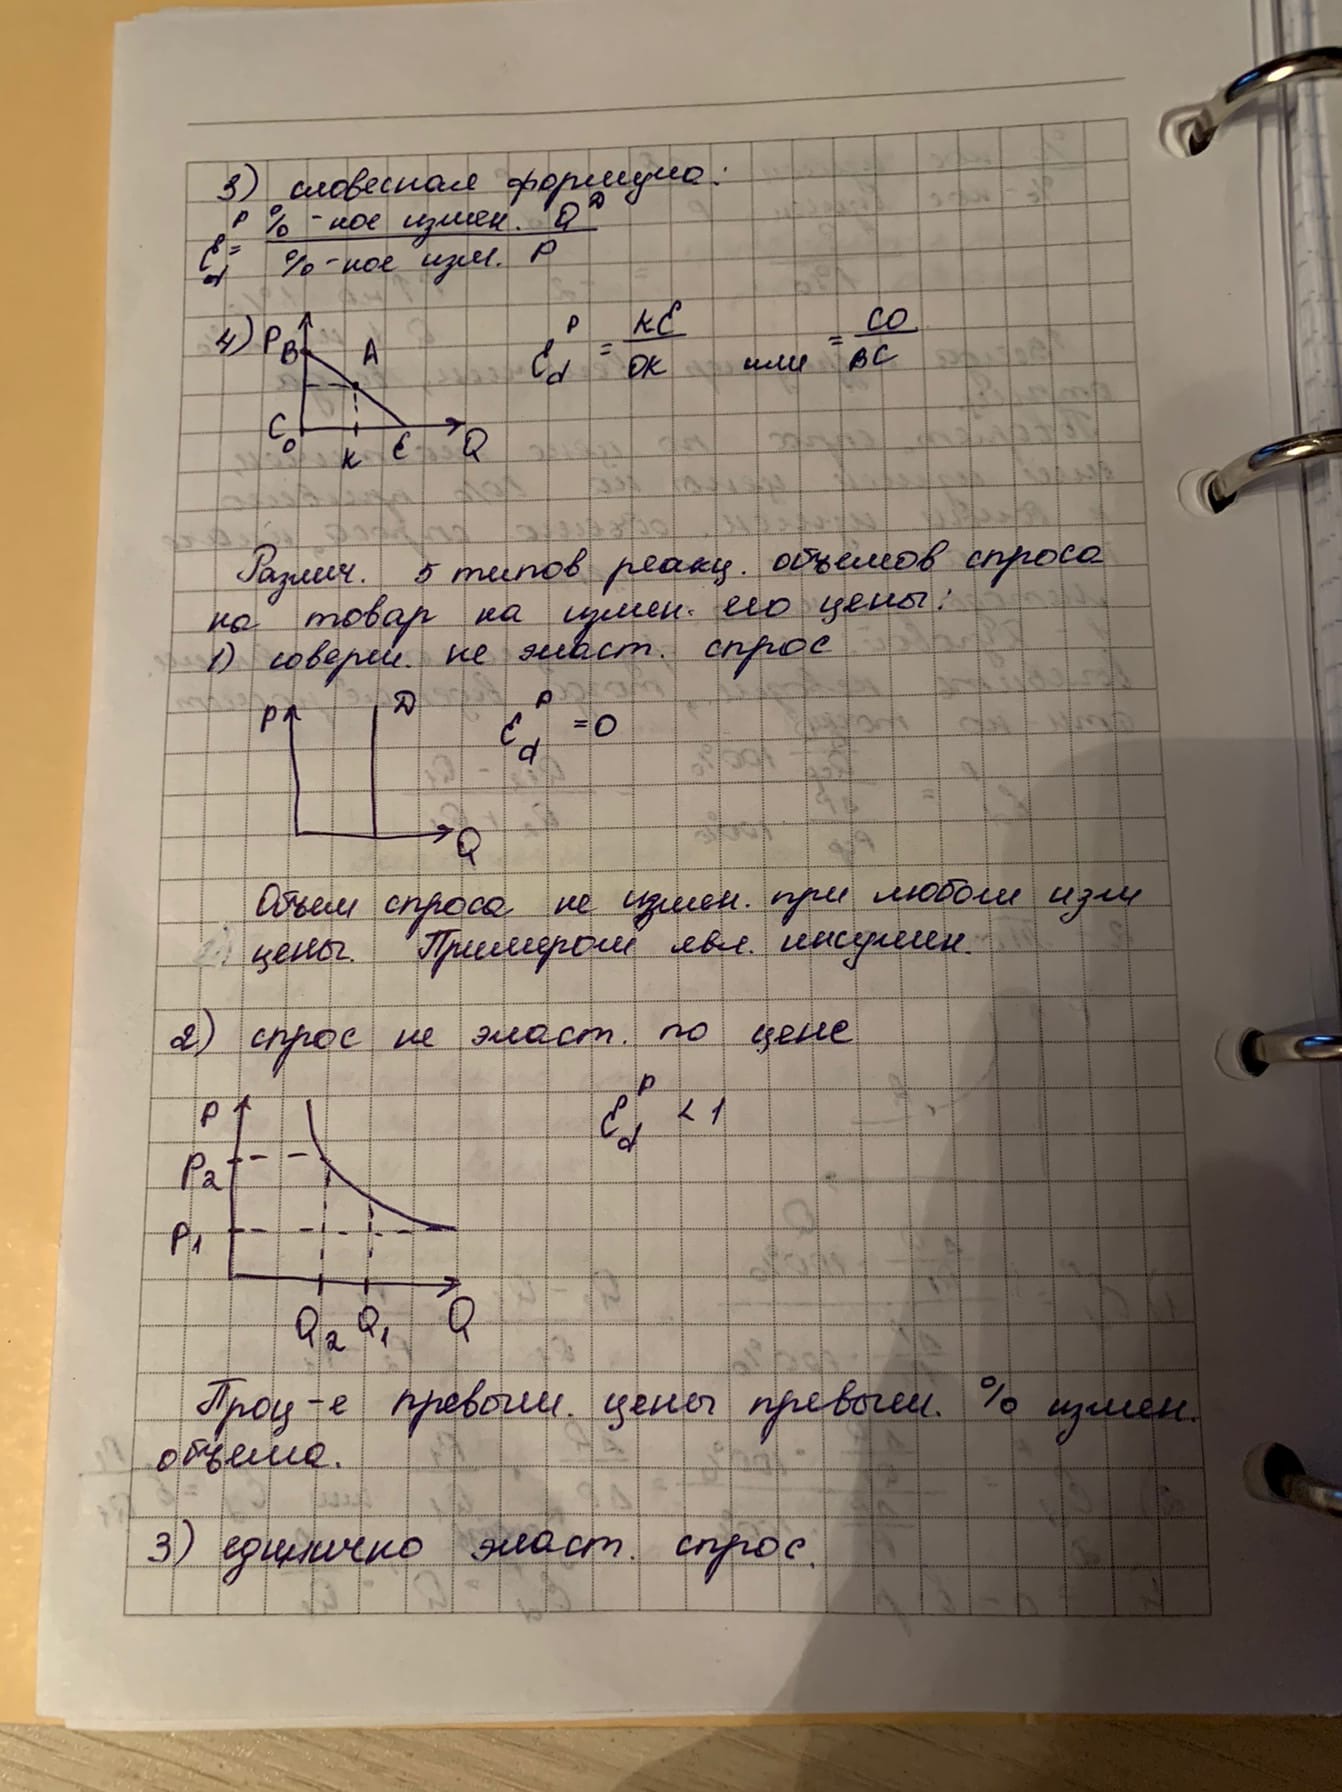 3) словесная формула:
E_d^P = %-ное измен. Q^D / %-ное изм. P
4) P B A C O K E Q
E_d^P = KE / OK или = CO / BC
Различ. 5 типов реакц. объемов спроса
на товар на измен. его цены:
1) соверш. не эласт. спрос
P D Q
E_d^P = 0
Объем спроса не измен. при любом изм
цены. Примером явл. инсулин.
2) спрос не эласт. по цене
E_d^P < 1
P
P2
P1
Q2 Q1 Q
Проц-е превыш. цены превыш. % измен.
объема.
3) единично эласт. спрос.